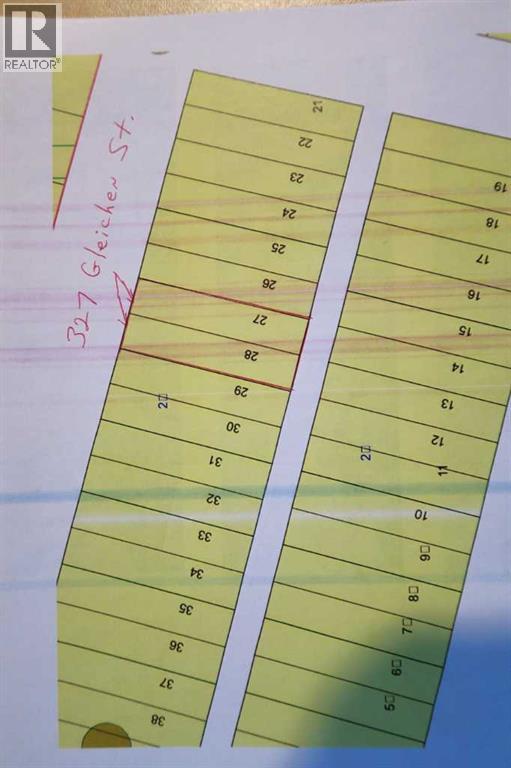 R
REALTOR®
327 Gleichen St.
21
22
23
24
25
26
27
28
29
30
31
32
33
34
35
36
37
38
2
19
18
17
16
15
14
13
12
11
10
9
8
7
6
5
2